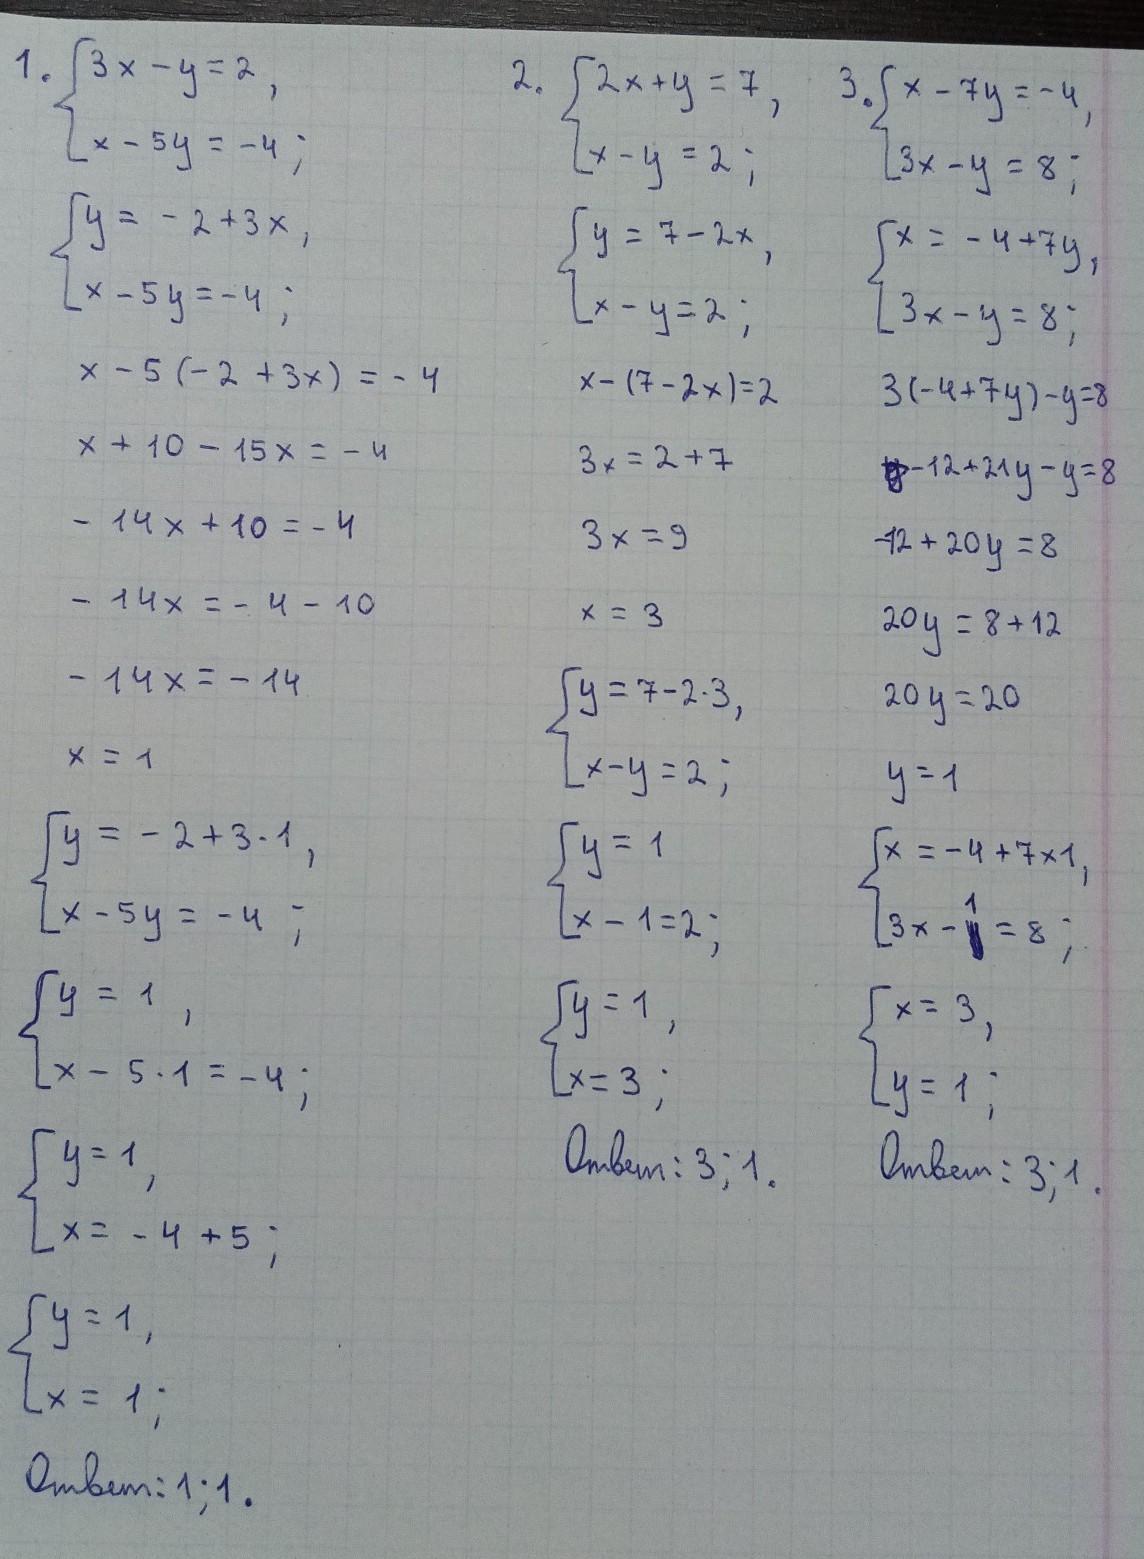 1. 3x - y = 2,
x - 5y = -4;
y = -2 + 3x,
x - 5y = -4;
x - 5(-2 + 3x) = -4
x + 10 - 15x = -4
-14x + 10 = -4
-14x = -4 - 10
-14x = -14
x = 1
y = -2 + 3·1,
x - 5y = -4;
y = 1,
x - 5·1 = -4;
y = 1,
x = -4 + 5;
y = 1,
x = 1;
Ответ: 1; 1.
2. 2x + y = 7,
x - y = 2;
y = 7 - 2x,
x - y = 2;
x - (7 - 2x) = 2
3x = 2 + 7
3x = 9
x = 3
y = 7 - 2·3,
x - y = 2;
y = 1
x - 1 = 2;
y = 1,
x = 3;
Ответ: 3; 1.
3. x - 7y = -4,
3x - y = 8;
x = -4 + 7y,
3x - y = 8;
3(-4 + 7y) - y = 8
-12 + 21y - y = 8
-12 + 20y = 8
20y = 8 + 12
20y = 20
y = 1
x = -4 + 7×1,
3x - 1 = 8;
x = 3,
y = 1;
Ответ: 3; 1.